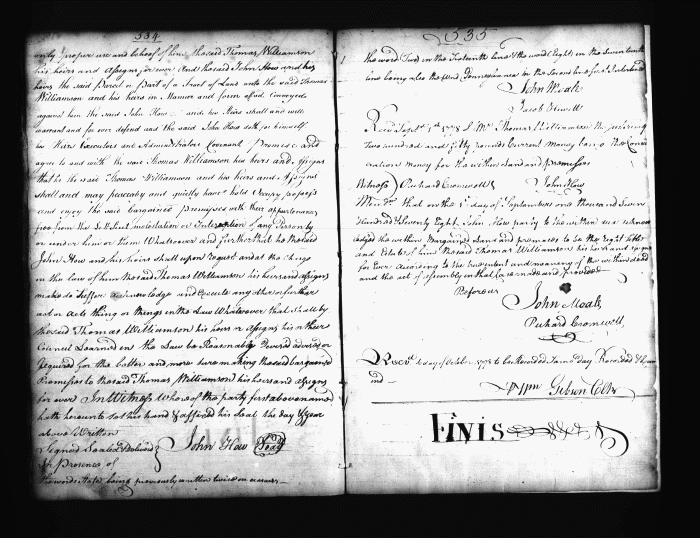 534
only proper use and behoof of him the said Thomas Williamson
his heirs and Assigns for ever And the said John How and his
heirs the said Parcel or Part of a Tract of Land unto the said Thomas
Williamson and his heirs in Manner and form afsd Conveyed
against him the said John How and his Heirs shall and will
warrant and for ever defend and the said John How doth for himself
his Heirs Executors and Administrators Covenant Promise and
agree to and with the said Thomas Williamson his heirs and Assigns
that he the said Thomas Williamson and his heirs and Assigns
shall and may peaceably and quietly have hold Occupy possess
and enjoy the said bargained Premises with their appurtenances
free from the Let Suit molestation or Interruption of any Person by
or under him or them Whatsoever and further that he the said
John How and his heirs shall upon request and at the Charge
in the law of him the said Thomas Williamson his heirs and assigns
make do Suffer acknowledge and execute any other or further
act or acts thing or things in the Law Whatsoever that shall by
the said Thomas Williamson his heirs or Assigns his or their
Council Learned in the Law be Reasonably Devised advised or
required for the better and more sure making the said bargained
Premises to the said Thomas Williamson his heirs and assigns
for ever In Witness whereof the party first above named
hath hereunto set his hand & affixed his Seal the day & year
above Written
Signed Sealed & Delivered John How Seal
In Presence of
the words being previously written twice on erasures
535
the word (Two) in the Fifteenth line & the word (Eight) in the Seventeenth
line being also the in the Second line first Interlined
John Moale
Recd Septr 1st 1778 of Mr Thomas Williamson the
Two hundred and fifty Pounds Current Money being the Consi
deration money for the within Land and premises
Witness) Richard Cromwell John How
Memdm that on the 1st day of September one thousand Seven
Hundred & Seventy Eight John How party to the within acknow
ledged the within Bargained Land and premises to be the right title
and Estate of him the said Thomas Williamson his heirs and assigns
for Ever according to the true intent and meaning of the within deed
and the act of assembly in that Case made and provided
Before us
John Moale
Richard Cromwell
Recd to be Recorded same day Recorded &
ind
Wm Gibson Clk
FINIS